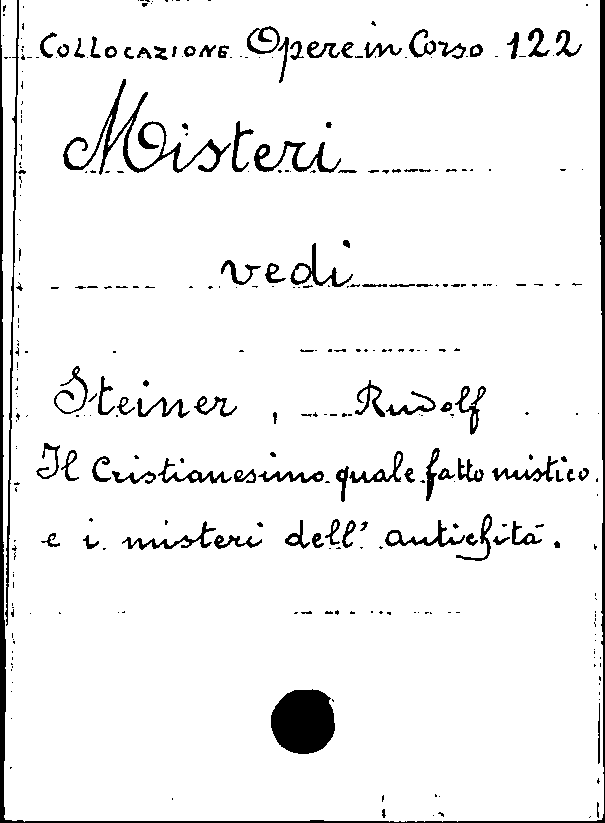 COLLOCAZIONE Opere in Corso 122
Misteri
vedi
Steiner, Rudolf
Il Cristianesimo quale fatto mistico
e i misteri dell'antichità.